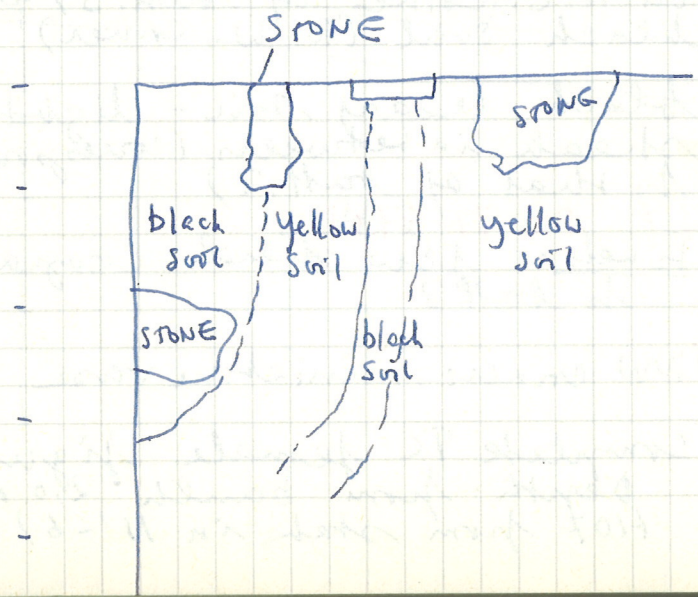 STONE
STONE
black
soil
yellow
soil
yellow
soil
STONE
black
soil